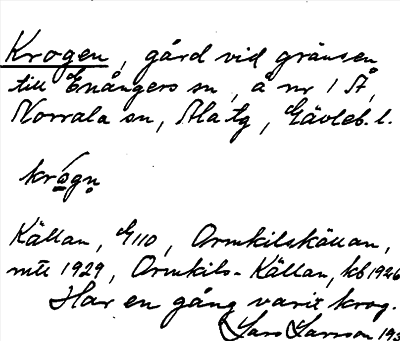 Krogen, gård vid gränsen
till Enångers sn, å nr 1 Å,
Norrala sn, Ala tg, Gävleb. l.
krógn
Källan, G110, Armkilskällan,
mtl 1929, Armkils-Källan, kb 1926
Har en gång varit krog.
Lars Larsson 193